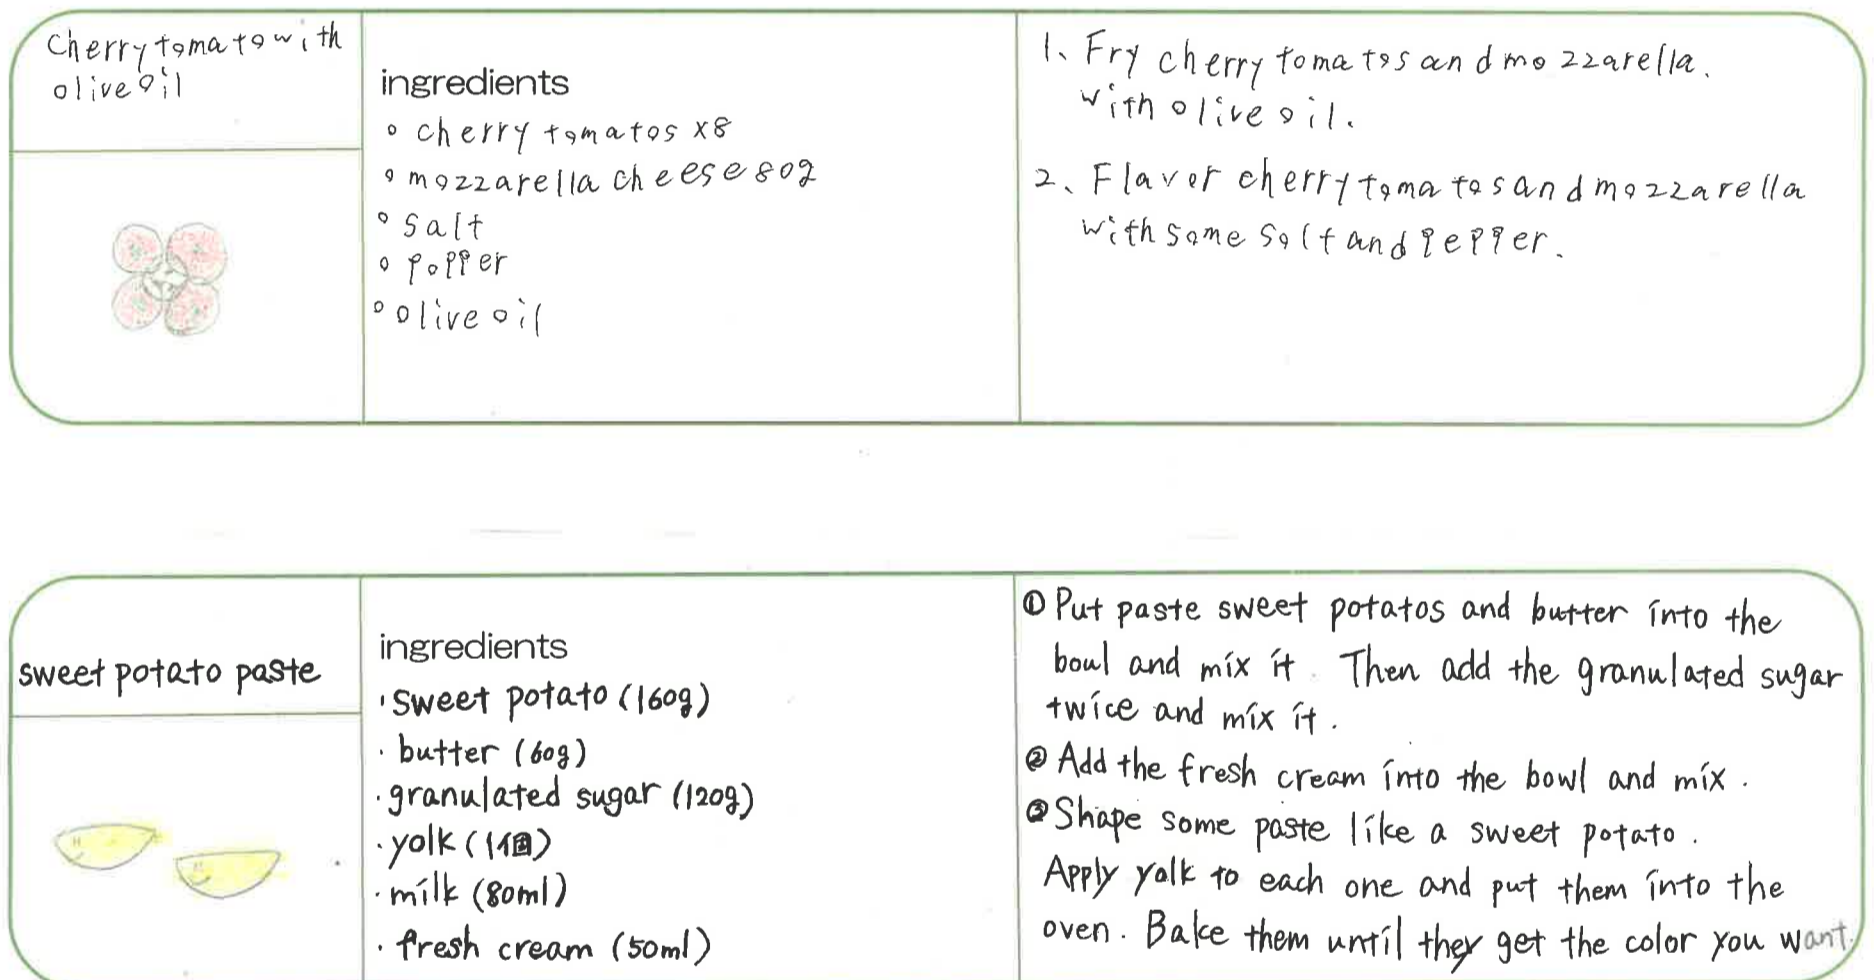 Cherry tomato with
olive oil
ingredients
◦ cherry tomatos x8
◦ mozzarella cheese 80g
◦ salt
◦ popper
◦ olive oil
1、Fry cherry tomatos and mozzarella.
with olive oil.
2、Flavor cherry tomatos and mozzarella
with some salt and pepper.
sweet potato paste
ingredients
・sweet potato (160g)
・butter (60g)
・granulated sugar (120g)
・yolk (1個)
・milk (80ml)
・fresh cream (50ml)
① Put paste sweet potatos and butter into the
boul and mix it. Then add the granulated sugar
twice and mix it.
② Add the fresh cream into the bowl and mix.
③ Shape some paste like a sweet potato.
Apply yolk to each one and put them into the
oven. Bake them until they get the color you want.